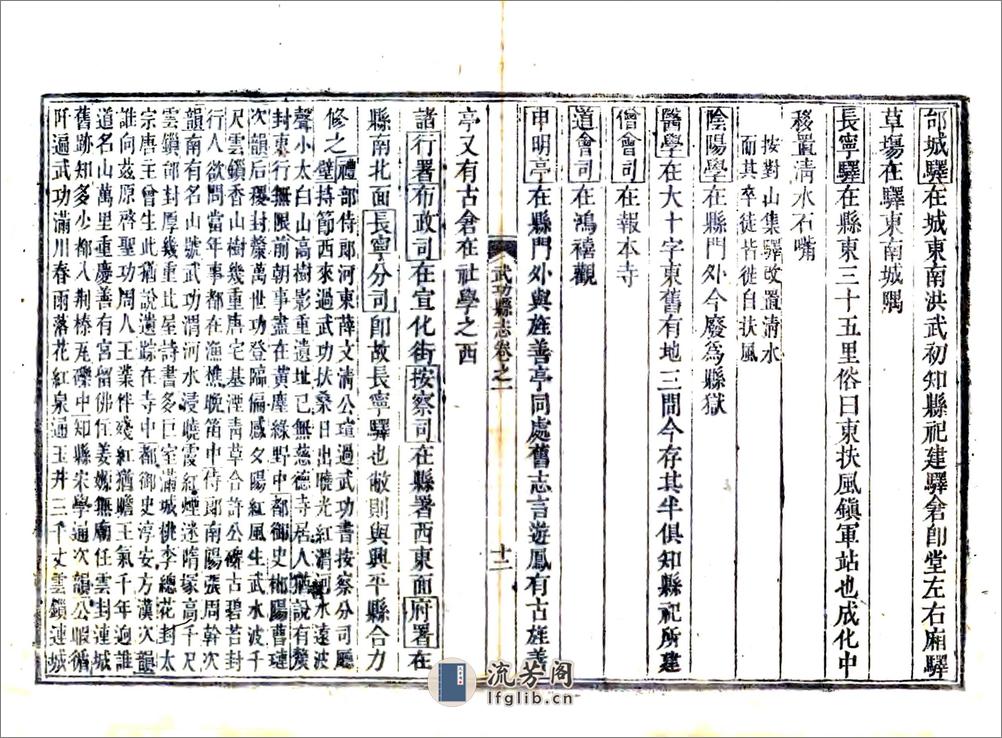 邰城驛在城東南洪武初知縣祀建驛倉卽堂左右廂驛
草塲在驛東南城隅
長寧驛在縣東三十五里俗曰東扶風鎭軍站也成化中
移置淸水石嘴
按對山集驛改置淸水
而其卒徒皆徙自扶風
陰陽學在縣門外今廢爲縣獄
醫學在大十字東舊有地三間今存其半俱知縣祀所建
僧會司在報本寺
道會司在鴻禧觀
申明亭在縣門外與旌善亭同處舊志言遊鳳有古旌善
武功縣志卷之一
十二
亭又有古倉在社學之西
諸行署布政司在宣化街按察司在縣署西東面府署在
縣南北面長寧分司卽故長寧驛也敝則與興平縣合力
修之
禮部侍郞河東薛文淸公瑄過武功書按察分司廳
壁持節西來過武功扶桑日出曉光紅渭河水遠波
聲小太白山高樹影重遺址已無慈德寺居人猶說有
封東行無限前朝事盡在黃塵綠野中都御史郴陽曹璉
次韻后稷封 萬世功登臨偏感夕陽紅風生武水波千
尺雲鎖香山樹幾重唐宅基湮靑草合許公碑古碧苔封
行人欲問當年事都在漁樵晚笛中侍郞南陽張 幹次
韻南有名山號武功渭河水浸曉霞紅煙迷隋塚高千尺
雲鎖 封厚幾重比屋詩書多巨室滿城桃李總花封太
宗唐王曾生此猶說遺踪在寺中都御史淳安方漢次韻
誰向茲原啓聖功周人王業伴殘紅猶瞻王氣千年逈誰
道名山萬里重慶善有宮留佛住姜嫄無廟任雲封連城
舊跡知多少 入荆榛瓦礫中知縣宋學通次韻公暇循
阡遍武功滿川春雨落花紅泉通玉井三千丈雲鎖連城
流芳阁
lfglib.cn